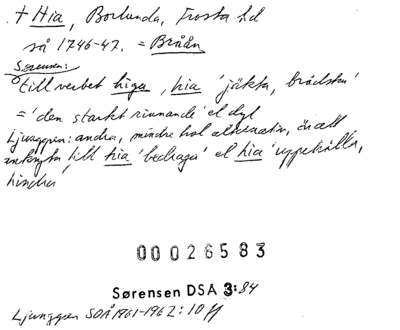 † Hia, Borlunda, Frosta hd
så 1746-47. = Bråån
Sørensen:
till verbet higa, hia 'jäkta, brådska'
= 'den starkt rinnande' el dyl
Ljunggren: andra, mindre bra alternativ, än att
anknyta till hia 'bedraga' el hia 'uppehålla,
hindra'
00026583
Sørensen DSA 3:84
Ljunggren SOÅ 1961-1962: 10 ff